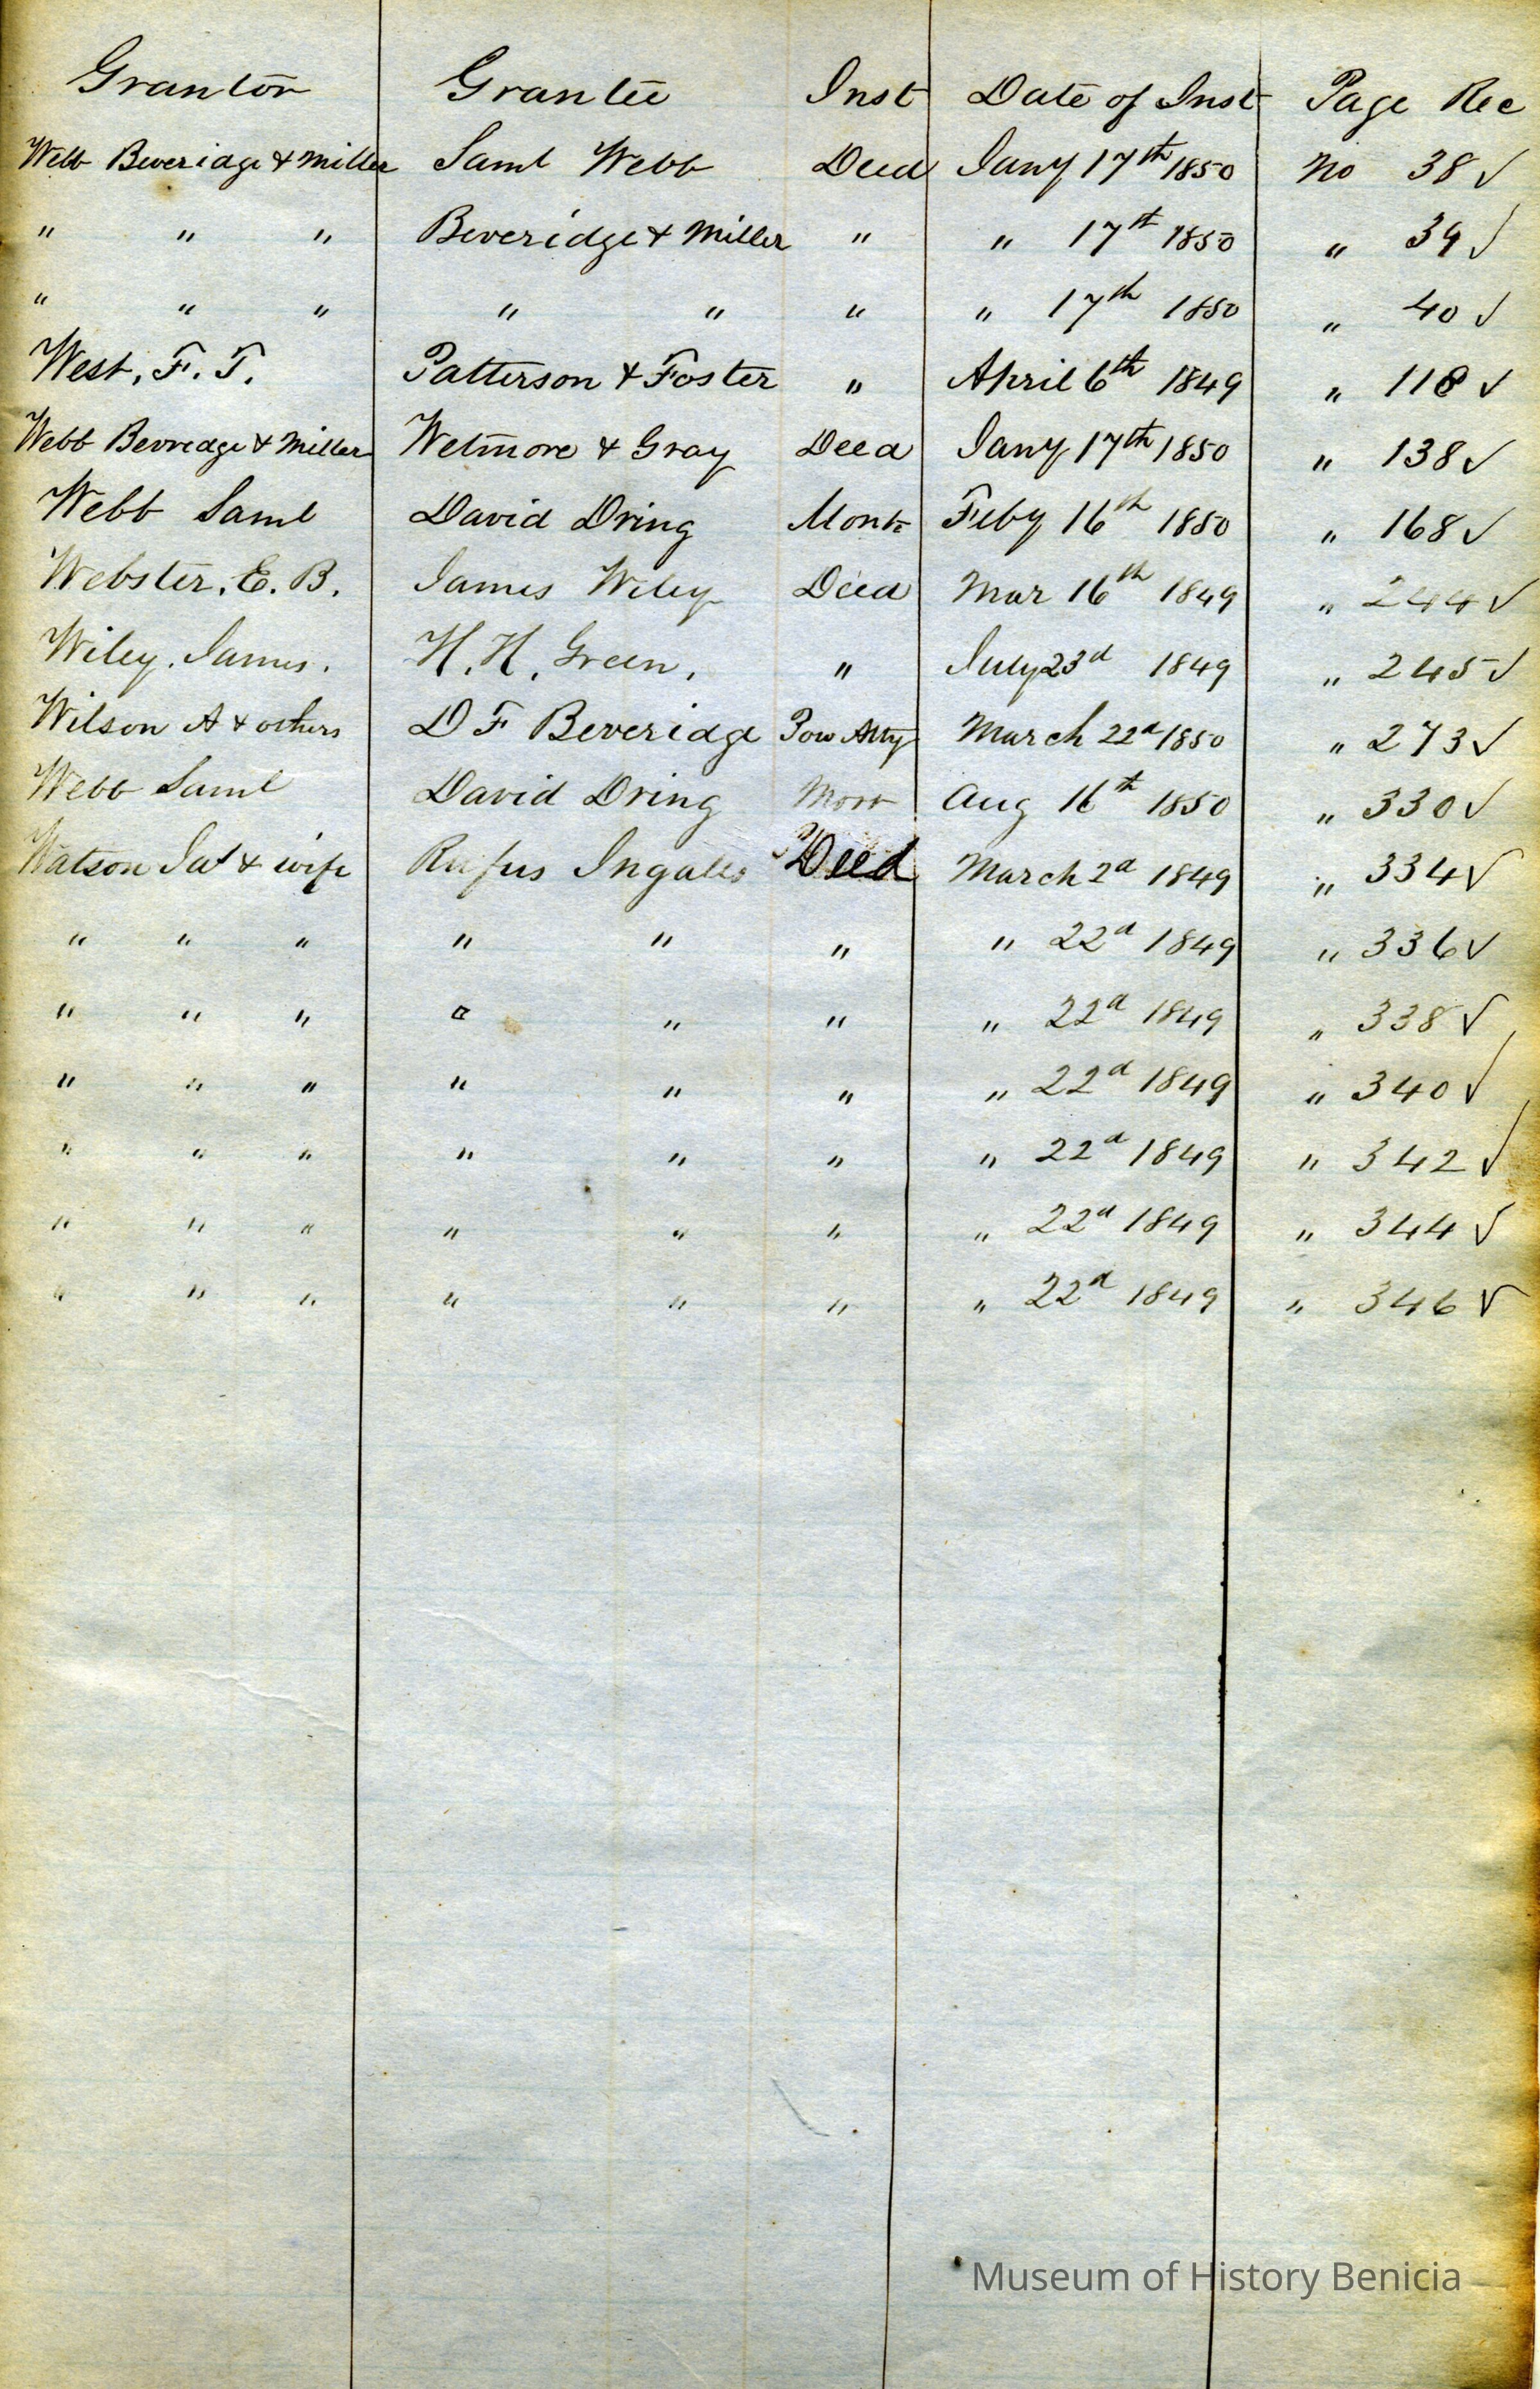 Grantor Grantee Inst Date of Inst Page Rec
Webb Beveridge & Miller Saml Webb Deed Jany 17th 1850 No 38 ✓
" " " Beveridge & Miller " " 17th 1850 " 39 ✓
" " " " " " " 17th 1850 " 40 ✓
West, F. T. Patterson & Foster " April 6th 1849 " 118 ✓
Webb Bevredge & Miller Wetmore & Gray Deed Jany 17th 1850 " 138 ✓
Webb Saml David Dring Feby 16th 1850 " 168 ✓
Webster, E. B. James Wiley Deed Mar 16th 1849 " 244 ✓
Wiley, James. H. H. Green, " July 23d 1849 " 245 ✓
Wilson A & others D F Beveridge Pow Atty March 22d 1850 " 273 ✓
Webb Saml David Dring Aug 16th 1850 " 330 ✓
Watson & wife Rufus Ingalls Deed March 2d 1849 " 334 ✓
" " " " " " " 22d 1849 " 336 ✓
" " " " " " " 22d 1849 " 338 ✓
" " " " " " " 22d 1849 " 340 ✓
" " " " " " " 22d 1849 " 342 ✓
" " " " " " " 22d 1849 " 344 ✓
" " " " " " " 22d 1849 " 346 ✓
Museum of History Benicia